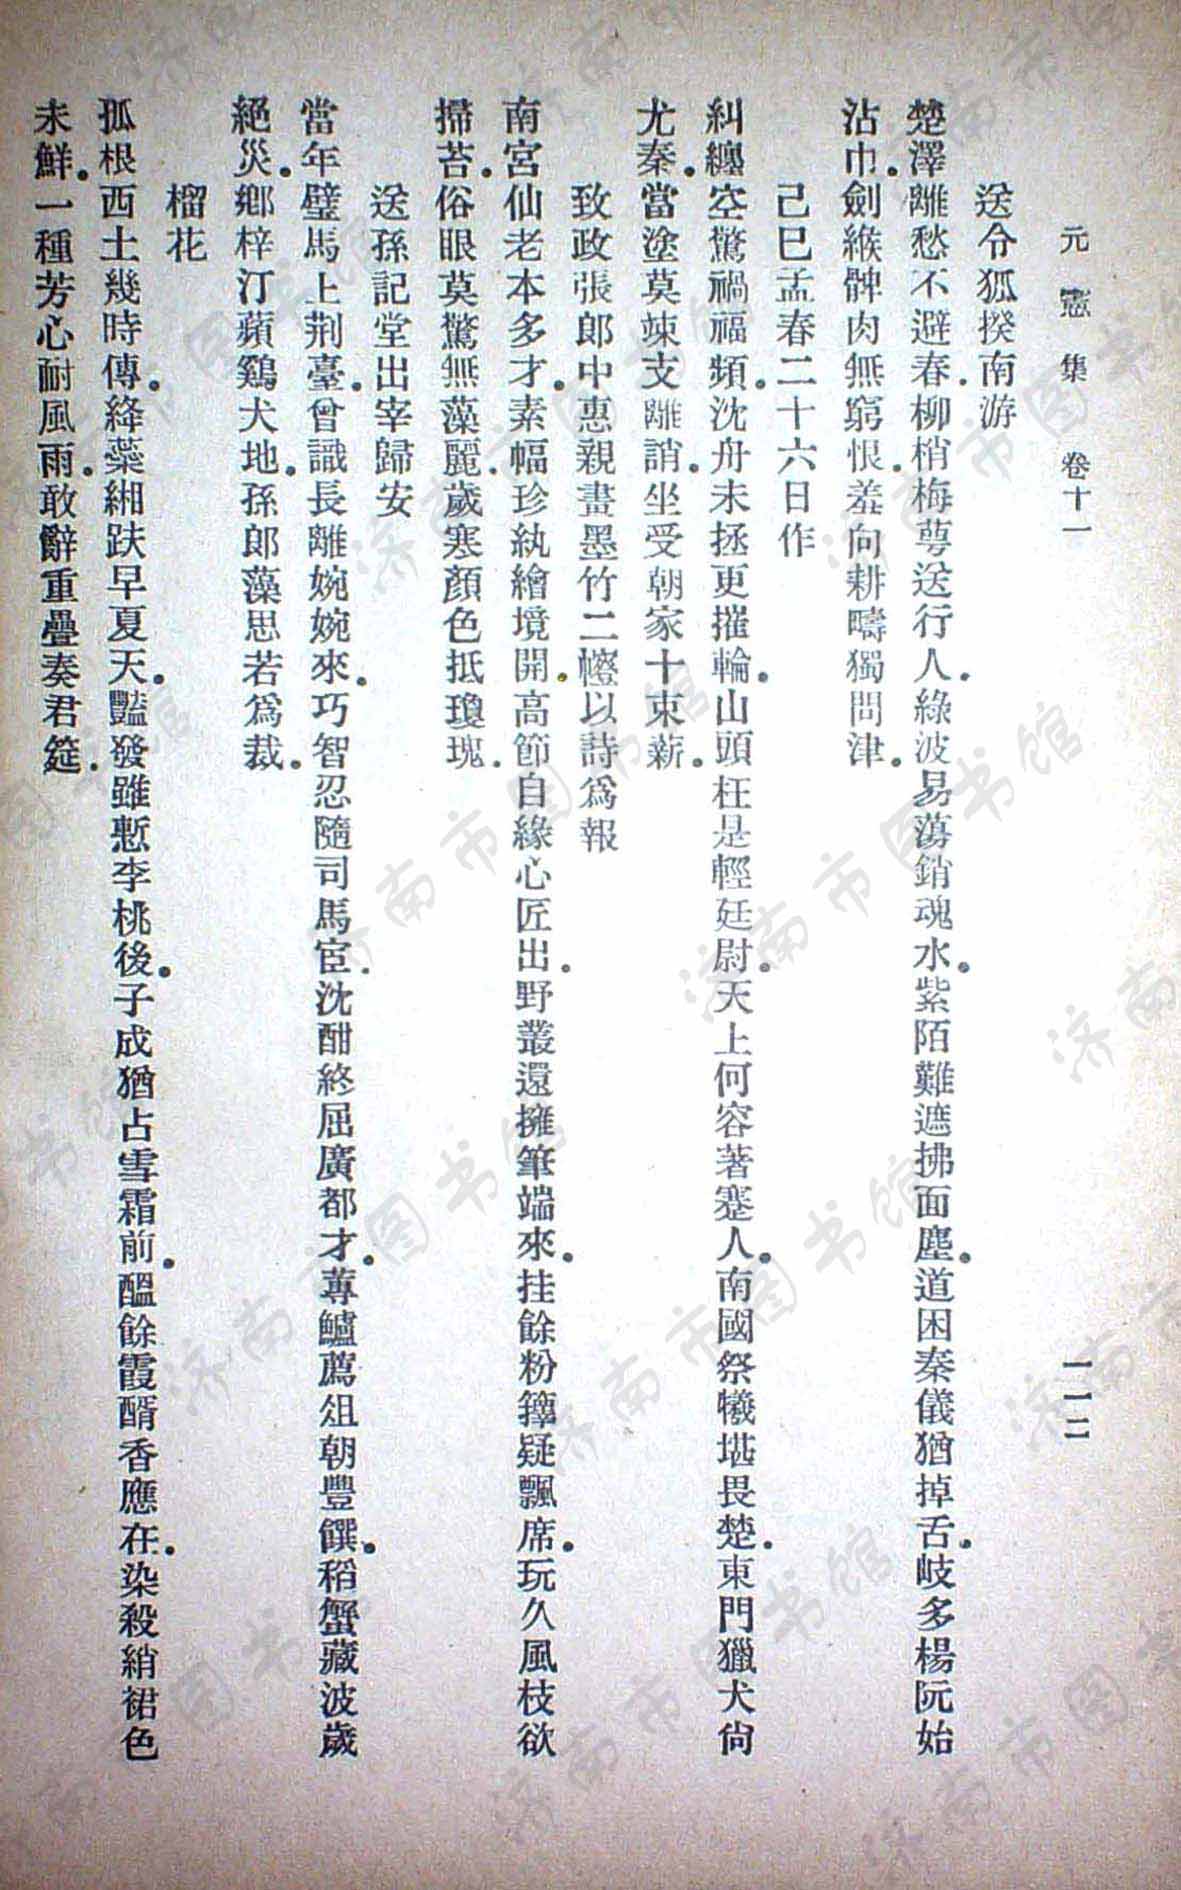 元憲集　卷十一　一一二
送令狐揆南游
楚澤離愁不避春．柳梢梅萼送行人．綠波易蕩銷魂水．紫陌難遮拂面塵．道困秦儀猶掉舌．岐多楊阮始
沾巾．劍緱髀肉無窮恨．羞向耕疇獨問津．
己巳孟春二十六日作
糾纏空驚禍福頻．沈舟未拯更摧輪．山頭枉是輕廷尉．天上何容著蹇人．南國祭犧堪畏楚．東門獵犬尙
尤秦．當塗莫竦支離誚．坐受朝家十束薪．
致政張郎中惠親畫墨竹二幢以詩爲報
南宮仙老本多才．素幅珍紈繪境開．高節自緣心匠出．野叢還擁筆端來．挂餘粉籜疑飄席．玩久風枝欲
掃苔．俗眼莫驚無藻麗．歲寒顏色抵瓊瑰．
送孫記堂出宰歸安
當年璧馬上荆臺．曾識長離婉婉來．巧智忍隨司馬宦．沈酣終屈廣都才．蓴鱸薦俎朝豐饌．稻蟹藏波歲
絕災．鄉梓汀蘋鷄犬地．孫郎藻思若爲裁．
榴花
孤根西土幾時傳．絳蘂緗趺早夏天．豔發雖慙李桃後．子成猶占雪霜前．醞餘霞醑香應在．染殺綃裙色
未鮮．一種芳心耐風雨．敢辭重疊奏君筵．